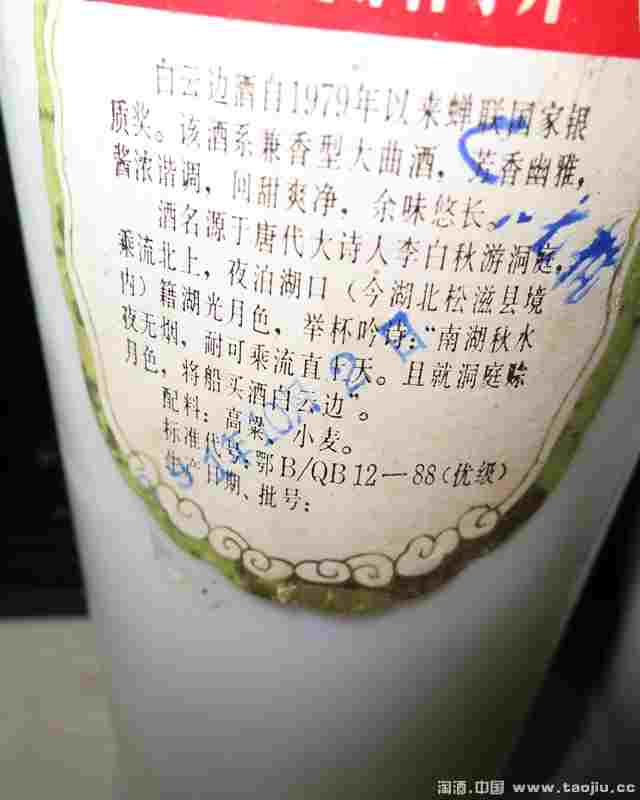 白云边酒自1979年以来蝉联国家银
质奖。该酒系兼香型大曲酒，芳香幽雅，
酱浓谐调，回甜爽净，余味悠长。
酒名源于唐代大诗人李白秋游洞庭，
乘流北上，夜泊湖口（今湖北松滋县境
内）籍湖光月色，举杯吟诗：“南湖秋水
夜无烟，耐可乘流直上天。且就洞庭赊
月色，将船买酒白云边”。
配料：高粱、小麦。
标准代号：鄂B/QB 12—88（优级）
生产日期、批号：
淘酒.中国 www.taojiu.cc